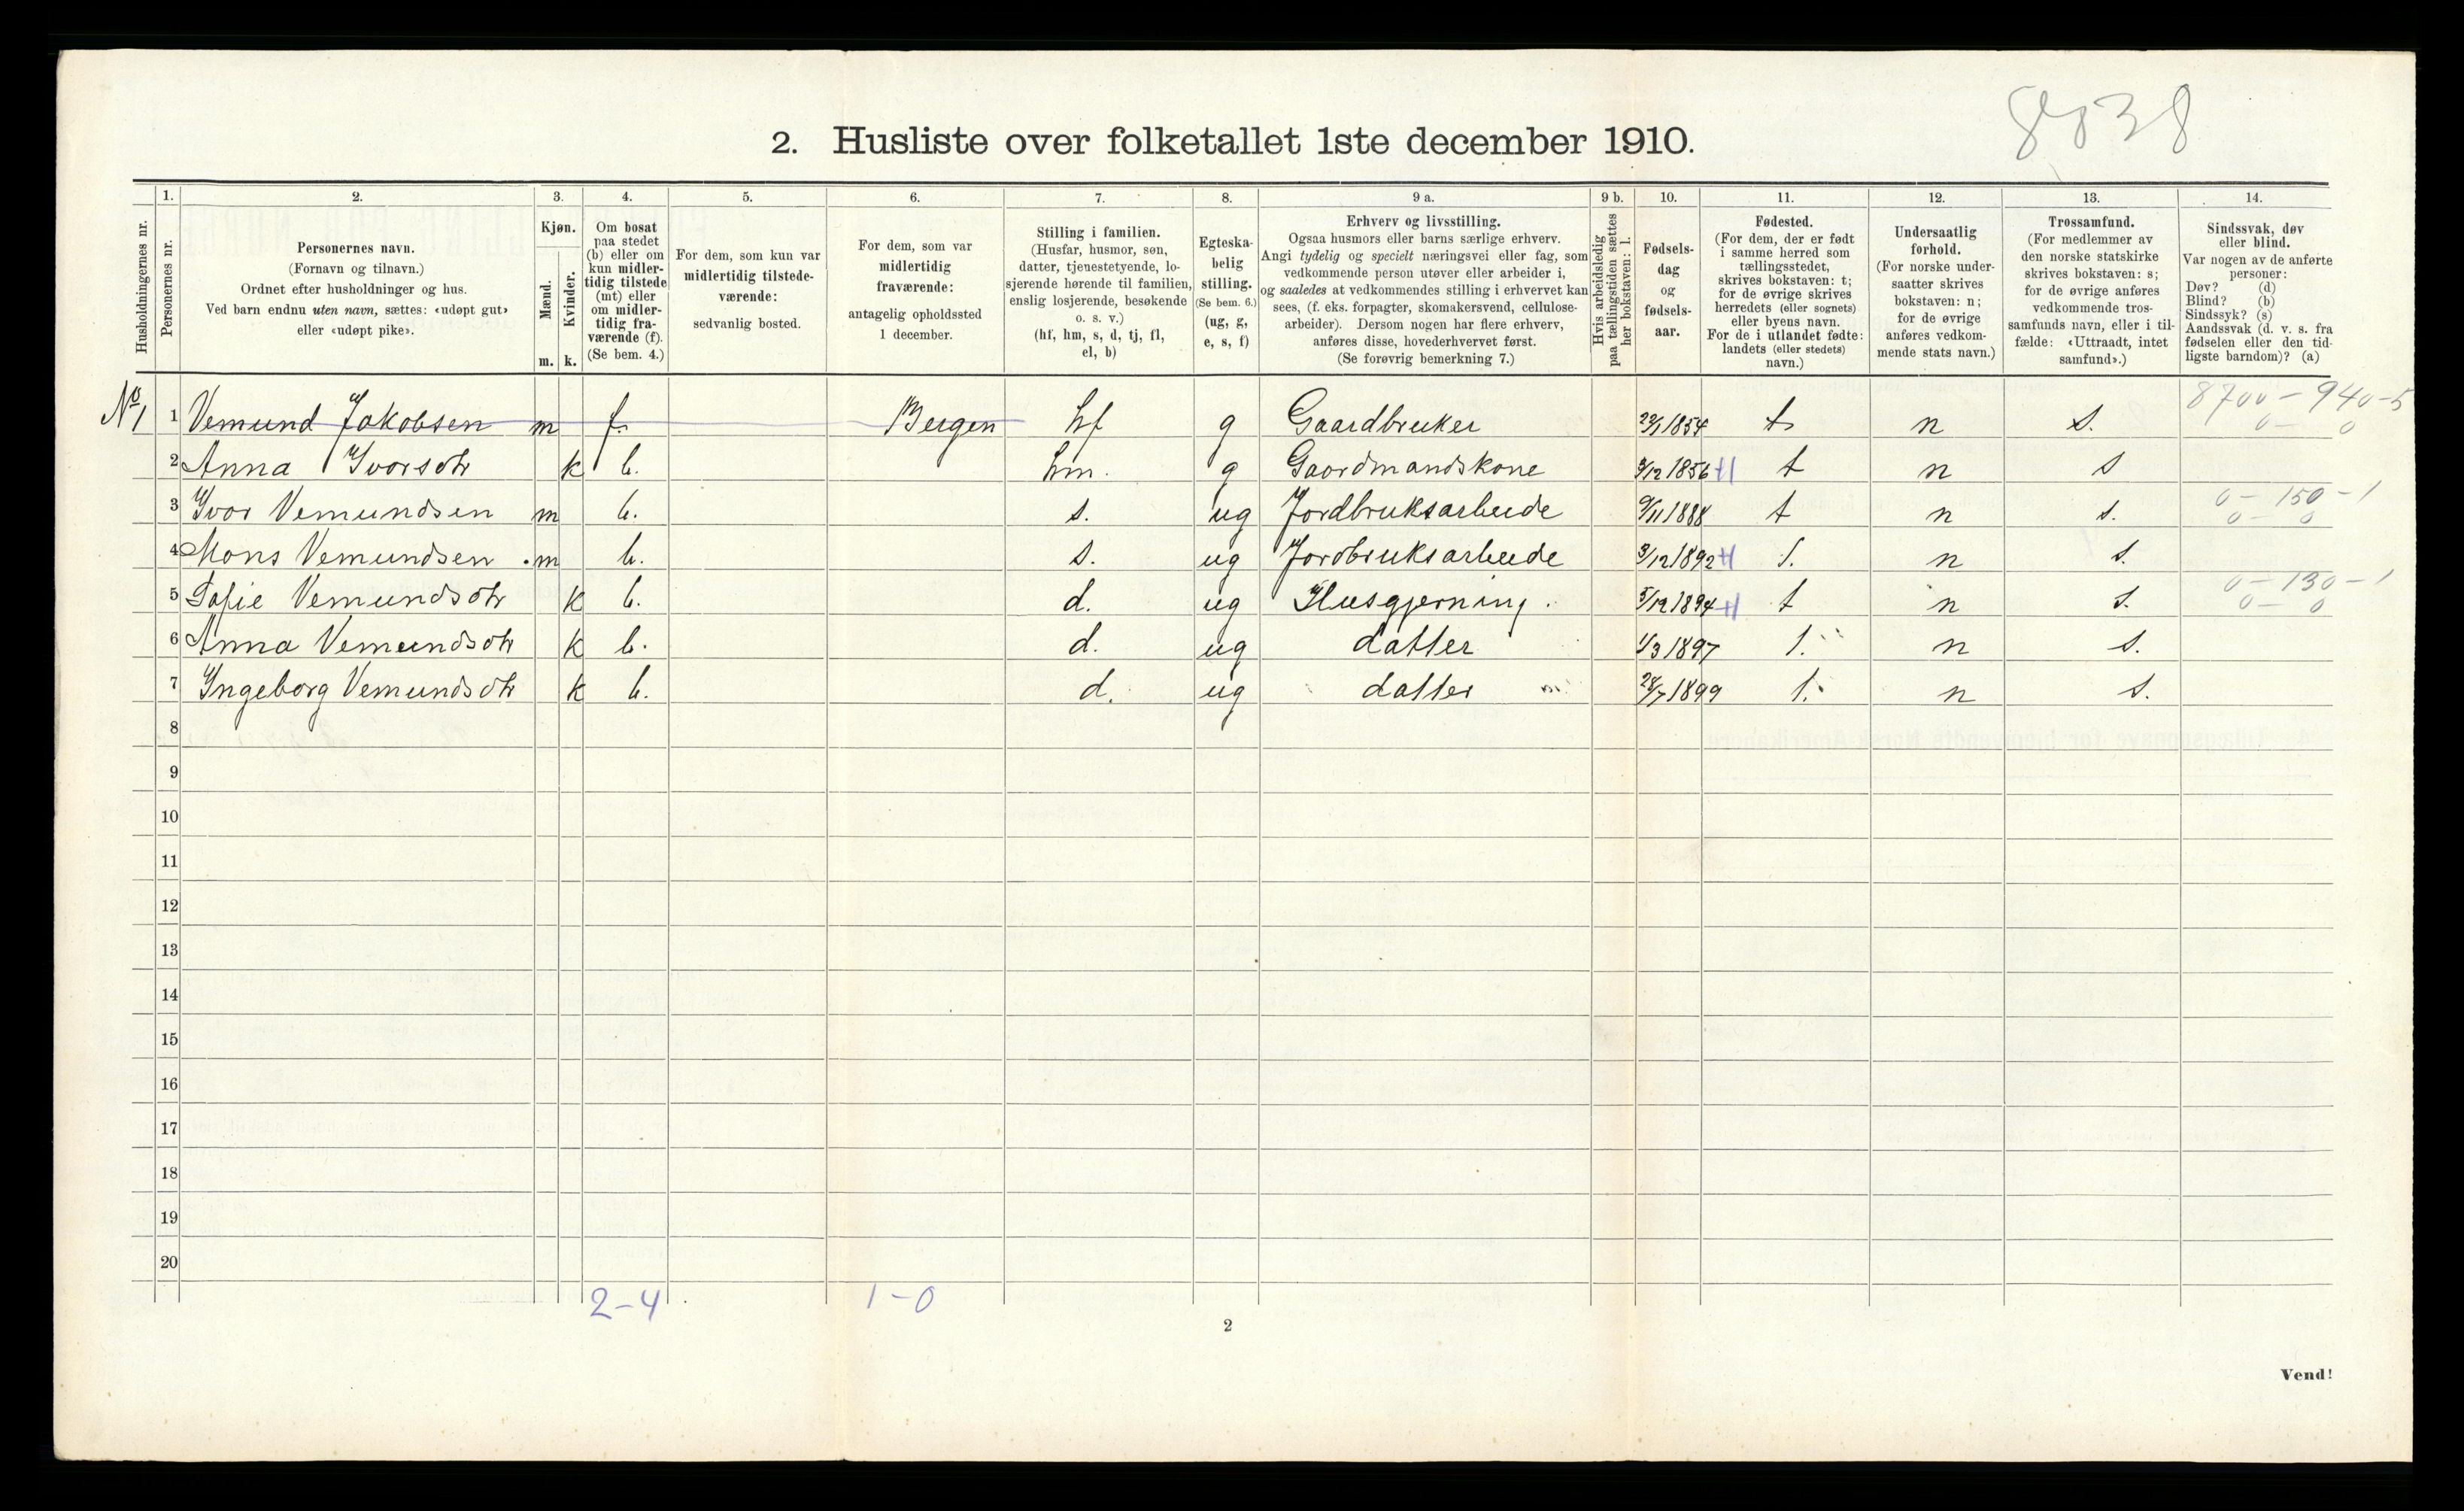 8838
2. Husliste over folketallet 1ste december 1910.
Husholdningernes nr.
1. Personernes nr.
2. Personernes navn. (Fornavn og tilnavn.) Ordnet efter husholdninger og hus. Ved barn endnu uten navn, sættes: «udøpt gut» eller «udøpt pike».
3. Kjøn. Mænd. m. Kvinder. k.
4. Om bosat paa stedet (b) eller om kun midlertidig tilstede (mt) eller om midlertidig fraværende (f). (Se bem. 4.)
5. For dem, som kun var midlertidig tilstedeværende: sedvanlig bosted.
6. For dem, som var midlertidig fraværende: antagelig opholdssted 1 december.
7. Stilling i familien. (Husfar, husmor, søn, datter, tjenestetyende, losjerende hørende til familien, enslig losjerende, besøkende o. s. v.) (hf, hm, s, d, tj, fl, el, b)
8. Egteskabelig stilling. (Se bem. 6.) (ug, g, e, s, f)
9 a. Erhverv og livsstilling. Ogsaa husmors eller barns særlige erhverv. Angi tydelig og specielt næringsvei eller fag, som vedkommende person utøver eller arbeider i, og saaledes at vedkommendes stilling i erhvervet kan sees, (f. eks. forpagter, skomakersvend, cellulosearbeider). Dersom nogen har flere erhverv, anføres disse, hovederhvervet først. (Se forøvrig bemerkning 7.)
9 b. Hvis arbeidsledig paa tællingstiden sættes her bokstaven: l.
10. Fødselsdag og fødselsaar.
11. Fødested. (For dem, der er født i samme herred som tællingsstedet, skrives bokstaven: t; for de øvrige skrives herredets (eller sognets) eller byens navn. For de i utlandet fødte: landets (eller stedets) navn.)
12. Undersaatlig forhold. (For norske undersaatter skrives bokstaven: n; for de øvrige anføres vedkommende stats navn.)
13. Trossamfund. (For medlemmer av den norske statskirke skrives bokstaven: s; for de øvrige anføres vedkommende trossamfunds navn, eller i tilfælde: «Uttraadt, intet samfund».)
14. Sindssvak, døv eller blind. Var nogen av de anførte personer: Døv? (d) Blind? (b) Sindssyk? (s) Aandssvak (d. v. s. fra fødselen eller den tidligste barndom)? (a)
8700 - 940-5
No 1 1 Vemund Jakobsen m f. Bergen hf g Gaardbruker 22/1 1854 t n s. 0 - 0
2 Anna Ivorsdtr k b. hm. g Gaardmandskone 9/12 1856 t n s
0 - 150 - 1
3 Ivor Vemundsen m b. s. ug Jordbruksarbeide 9/11 1888 t n s. 0 - 0
4 Mons Vemundsen m b. s. ug Jordbruksarbeide 9/12 1892 t. n s.
0 - 130 - 1
5 Sofie Vemundsdtr k b. d. ug Husgjerning. 5/12 1894 t n s. 0 - 0
6 Anna Vemundsdtr k b. d. ug datter 1/3 1897 t. n s.
7 Ingeborg Vemundsdtr k b. d. ug datter 28/7 1899 t. n s.
8
9
10
11
12
13
14
15
16
17
18
19
20
2-4 1-0
2
Vend!